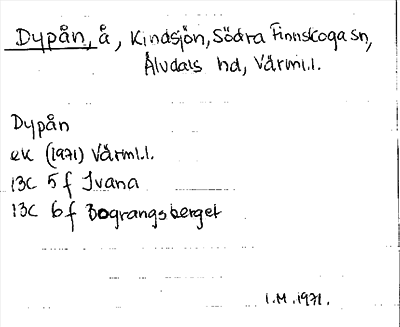 Dypån, å, Kindsjön, Södra Finnskoga sn,
Älvdals hd, Värml.l.
Dypån
ek (1971) Värml.l.
13C 5f Ivana
13C 6f Bograngsberget
I.M. 1971.